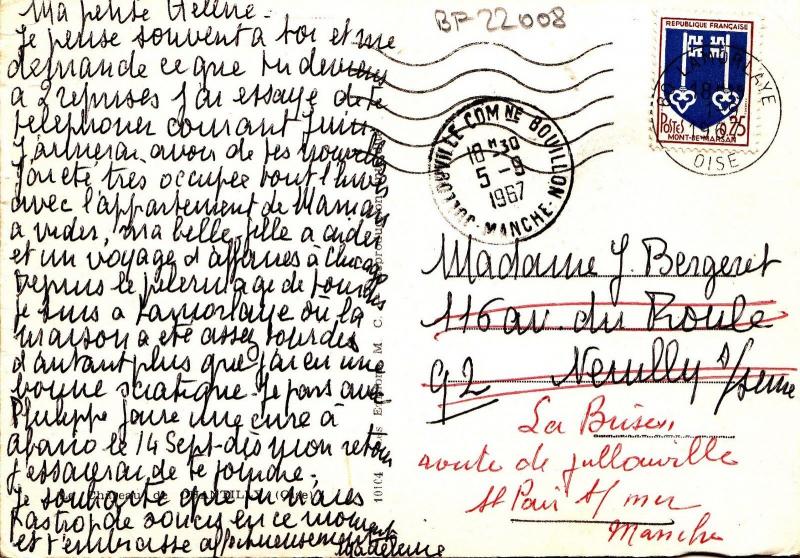 Ma petite Hélène.
Je pense souvent à toi et me
demande ce que tu deviens
à 2 reprises j'ai essayé de te
telephoner courant Juin
J'aimerai avoir de tes nouvelles
J'ai été très occupée tout l'hiver
avec l'appartement de Maman
à vider, ma belle fille à aider
et un voyage d'affaires à Chicago
Depuis le pelerinage de Lourdes
je suis à Lamorlaye où la
maison a été assez lourde
d'autant plus que j'ai eu une
bonne sciatique. Je pars avec
Philippe faire une cure à
abano le 14 Sept - dès mon retour
j'essaierai de te joindre.
Je souhaite que tu n'aies
pas trop de soucis en ce moment
et t'embrasse affectueusement
Madeleine
Château de CHANTILLY (Oise)
10104
BP 22008
REPUBLIQUE FRANÇAISE
POSTES 0,25
MONT-DE-MARSAN
60 LAMORLAYE
18
OISE
JULLOUVILLE COMNE BOUILLON
18H30
5-9
1967
MANCHE
Madame J. Bergeret
116 av. du Roule
92 Neuilly s/seine
La Brise
route de Jullouville
St Pair s/mer
Manche